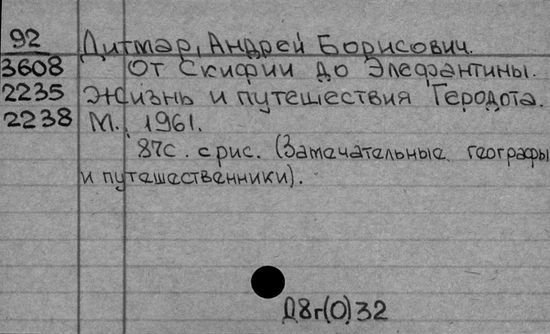 92 Дитмар, Андрей Борисович.
3608 От Скифии до Элефантины.
2235 Жизнь и путешествия Геродота.
2238 М., 1961.
87с. с рис. (Замечательные географы
и путешественники).
Д8г(0)32